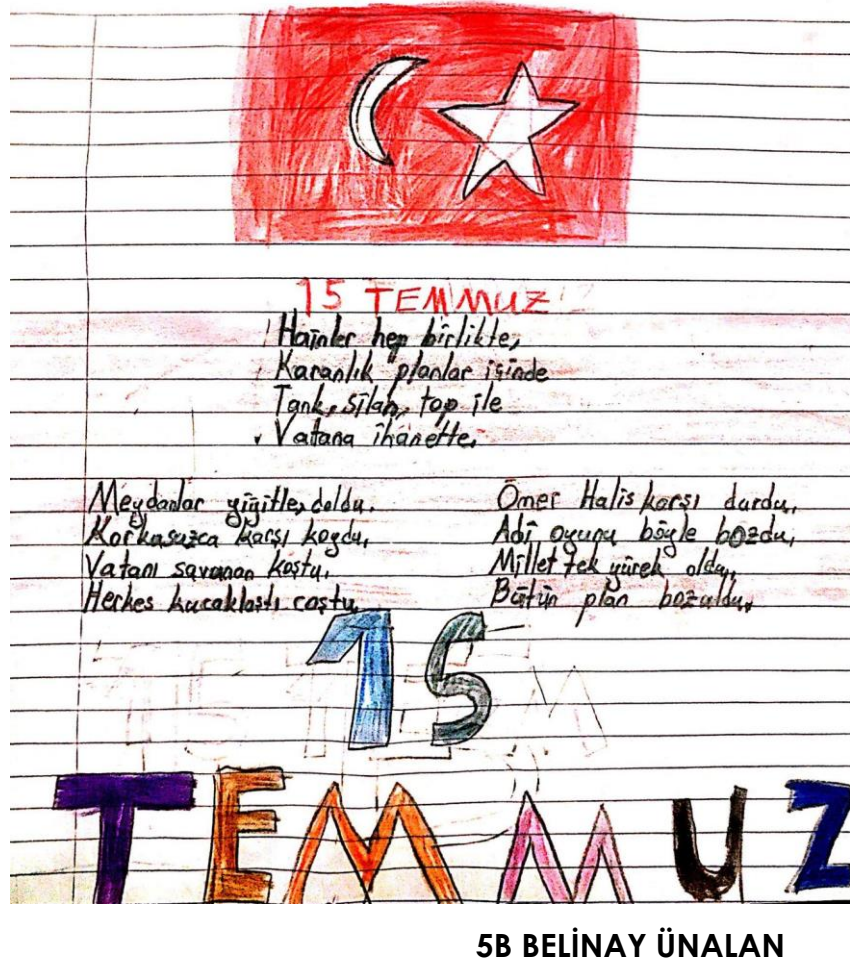 15 TEMMUZ
Hainler hep birlikte,
Karanlık planlar içinde
Tank, silah, top ile
Vatana ihanette.
Meydanlar yiğitle doldu.
Korkusuzca karşı koydu,
Vatanı savunan koştu,
Herkes kucaklaştı coştu
Ömer Halis karşı durdu,
Adi oyunu böyle bozdu,
Millet tek yürek oldu,
Bütün plan bozuldu.
15
TEMMUZ
5B BELİNAY ÜNALAN